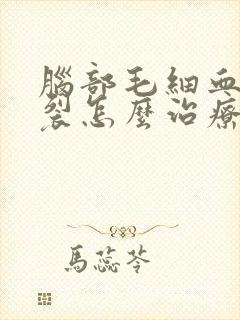 腦部毛細血
裂怎麼治療
馬蕊苓